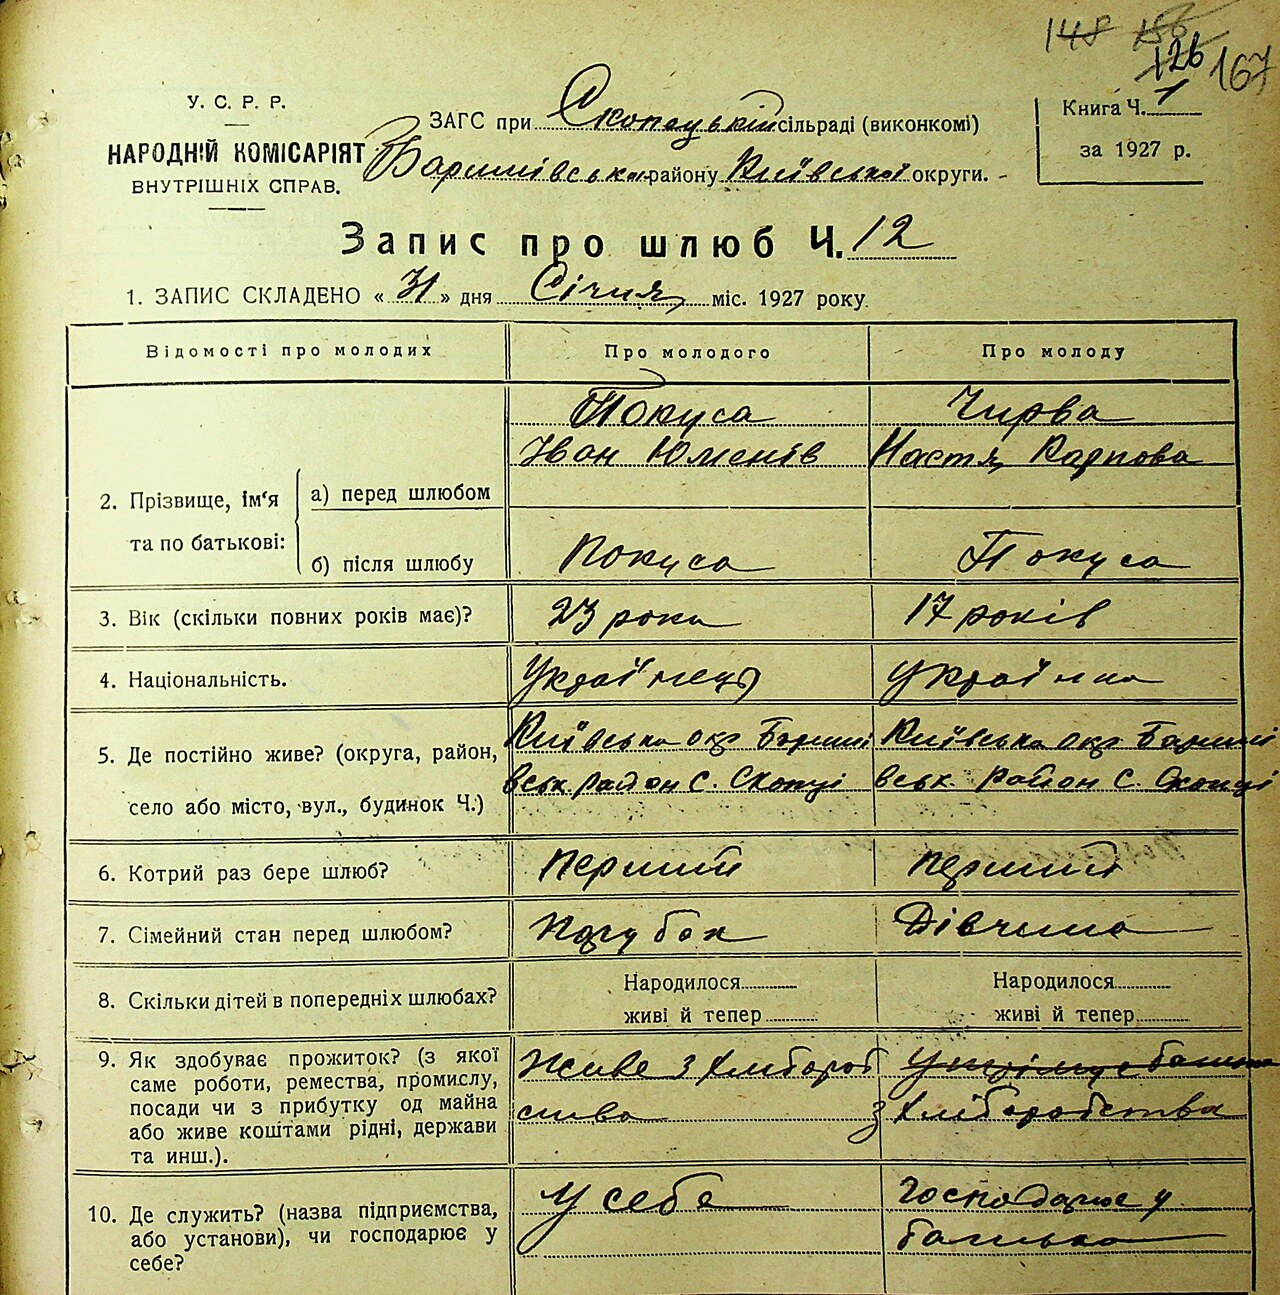 148 156
126 167
У. С. Р. Р.
НАРОДНІЙ КОМІСАРІЯТ
ВНУТРІШНІХ СПРАВ.
ЗАГС при Скопецькій сільраді (виконкомі)
Баришівська району Київської округи.
Книга Ч. 1
за 1927 р.
Запис про шлюб Ч. 12
1. ЗАПИС СКЛАДЕНО « 31 » дня Січня міс. 1927 року
Відомості про молодих Про молодого Про молоду
Покуса Чирва
Іван Юменів Настя Карпова
2. Прізвище, ім'я та по батькові:
а) перед шлюбом
б) після шлюбу Покуса Покуса
3. Вік (скільки повних років має)? 23 рока 17 років
4. Національність. Українець Українка
5. Де постійно живе? (округа, район, Київська окр Бариші Київська окр Бариші
село або місто, вул., будинок Ч.) вськ район С. Скопці вськ район С. Скопці
6. Котрий раз бере шлюб? Перший перший
7. Сімейний стан перед шлюбом? Парубок Дівчина
8. Скільки дітей в попередніх шлюбах? Народилося Народилося
живі й тепер живі й тепер
9. Як здобуває прожиток? (з якої Живе з хлібороб
саме роботи, ремества, промислу,
посади чи з прибутку од майна ства з хліборобства
або живе коштами рідні, держави
та инш.).
10. Де служить? (назва підприємства, У себе Господарює у
або установи), чи господарює у батька
себе?